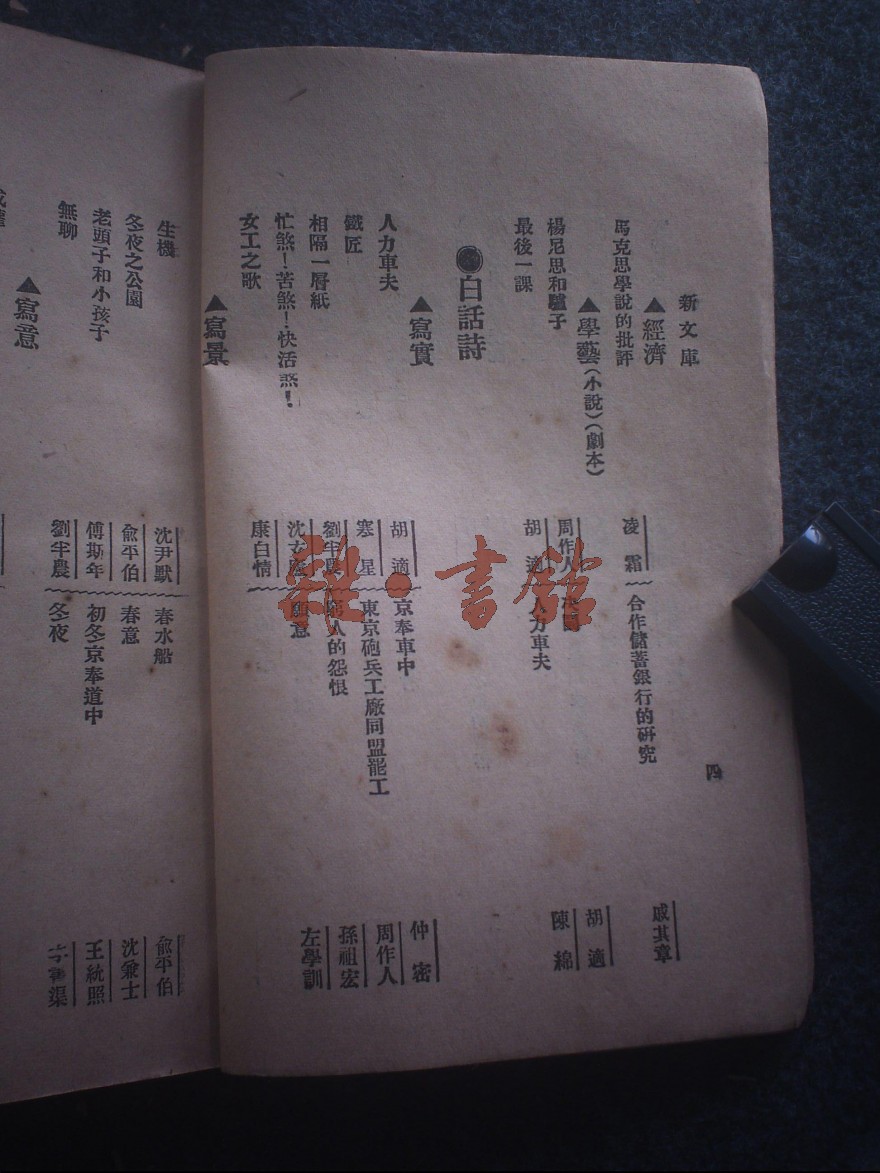 新文庫
四
▲經濟
馬克思學說的批評
凌霜
合作儲蓄銀行的研究
戚其章
▲學藝(小說)(劇本)
楊尼思和驢子
周作人
胡適
最後一課
胡適
人力車夫
陳綿
●白話詩
▲寫實
人力車夫
胡適
京奉車中
仲密
鐵匠
寒星
東京砲兵工廠同盟罷工
周作人
相隔一層紙
劉半農
窮人的怨恨
孫祖宏
忙煞!苦煞!快活煞!
沈玄廬
願意
左學訓
女工之歌
康白情
▲寫景
生機
沈尹默
春水船
俞平伯
冬夜之公園
俞平伯
春意
沈兼士
老頭子和小孩子
傅斯年
初冬京奉道中
王統照
無聊
劉半農
冬夜
▲寫意
雜·書館